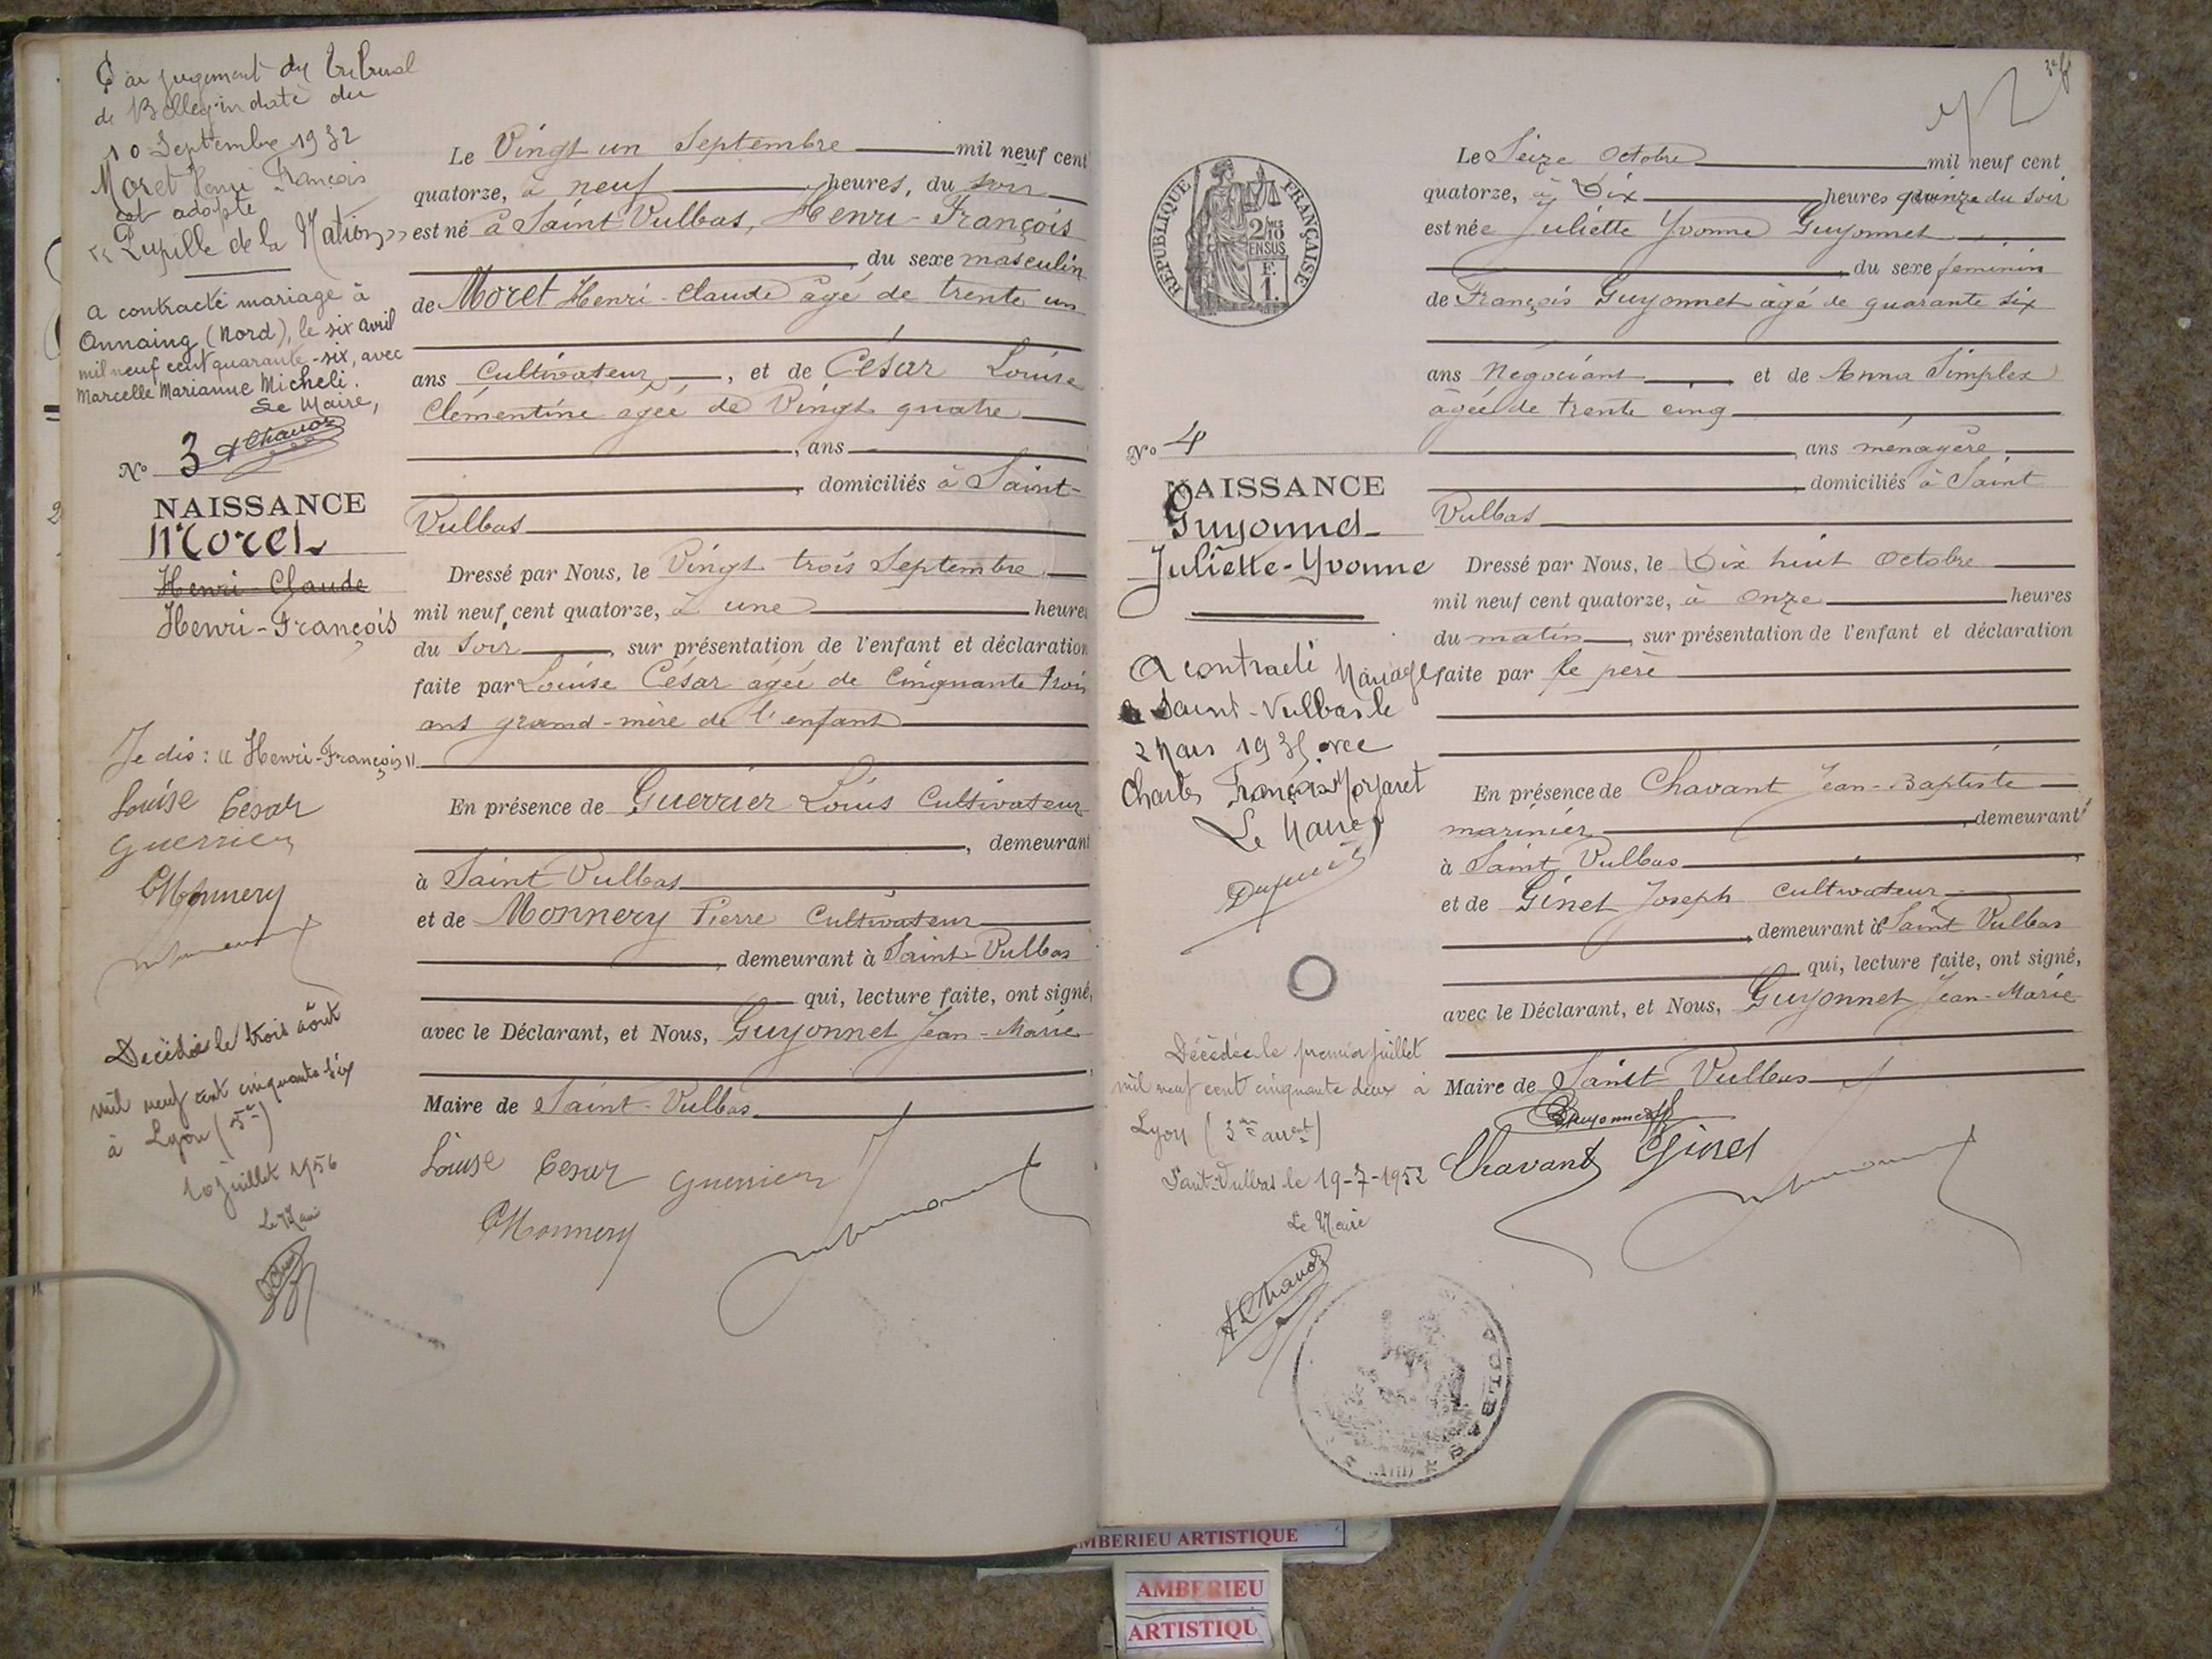 Par jugement du tribunal
de Belley in date du
10 Septembre 1932
Moret Henri François
est adopté
"Pupille de la Nation"
a contracté mariage à
Onnaing (Nord), le six avril
mil neuf cent quarante-six, avec
Marcelle Marianne Micheli.
Le Maire,
A Chavoz
No 3
NAISSANCE
Moret
Henri-Claude
Henri-François
Je dis : "Henri-François"
Louise Cesar
Guerrier
CMonnery
Decédé le trois août
mil neuf cent cinquante-six
à Lyon (5e)
juillet 1956
Le Maire
Le Vingt un Septembre mil neuf cent
quatorze, à neuf heures, du soir
est né à Saint Vulbas, Henri-François
, du sexe masculin
de Moret Henri-Claude âgé de trente un
ans Cultivateur, et de César Louise
Clémentine agée de Vingt quatre
, ans
, domiciliés à Saint-
Vulbas
Dressé par Nous, le Vingt trois Septembre
mil neuf cent quatorze, à une heures
du Soir, sur présentation de l'enfant et déclaration
faite par Louise César agée de Cinquante trois
ans grand-mère de l'enfant
En présence de Guerrier Louis Cultivateur
, demeurant
à Saint Vulbas
et de Monnery Pierre Cultivateur
, demeurant à Saint-Vulbas
qui, lecture faite, ont signé,
avec le Déclarant, et Nous, Guyonnet Jean-Marie
Maire de Saint-Vulbas
Louise Cesar Guerrier
CMonnery
RÉPUBLIQUE FRANÇAISE
2/10 MES
EN SUS
F.
1.
No 4
NAISSANCE
Guyonnet
Juliette-Yvonne
A contracté Mariage
à Saint-Vulbas le
2 Mars 1935 avec
Charles François Morjaret
Le Maire
Décédée le premier juillet
mil neuf cent cinquante deux à
Lyon (3me arrent)
Saint-Vulbas le 19-7-1952
Le Maire
A Chavoz
Le Seize Octobre mil neuf cent
quatorze, à Dix heures quinze du soir
est née Juliette Yvonne Guyonnet
, du sexe feminin
de François Guyonnet âgé de quarante six
ans Négociant, et de Anna Simplex
âgée de trente cinq
, ans ménagère
, domiciliés à Saint
Vulbas
Dressé par Nous, le Dix huit Octobre
mil neuf cent quatorze, à Onze heures
du matin, sur présentation de l'enfant et déclaration
faite par le père
En présence de Chavant Jean-Baptiste
marinier, demeurant
à Saint Vulbas
et de Ginet Joseph Cultivateur
, demeurant à Saint Vulbas
qui, lecture faite, ont signé,
avec le Déclarant, et Nous, Guyonnet Jean-Marie
Maire de Saint Vulbas
Guyonnet
Chavant Ginet
AMBERIEU ARTISTIQUE
AMBERIEU
ARTISTIQU